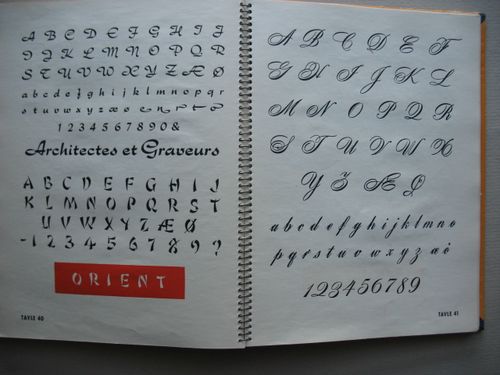 A B C D E F G H I
J J K L M N O P Q R
S T U V W X Y Z Æ Ø
a b c d e f g h i j k l m n o p q r
s t u v w x y z æ ø
1 2 3 4 5 6 7 8 9 0 &
Architectes et Graveurs
A B C D E F G H I J
K L M N O P Q R S T
U V W X Y Z Æ Ø
- 1 2 3 4 5 6 7 8 9 ?
ORIENT
TAVLE 40
A B C D E F
G H I J K L
M N O P Q R
S T U V W X
Y Z Æ Ø
a b c d e f g h i j k l m n o
p q r s t u v w x y z æ ø
1 2 3 4 5 6 7 8 9
TAVLE 41